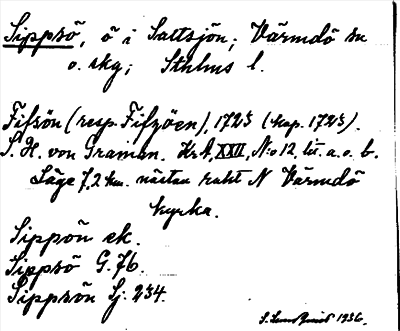 Sippsö, ö i Saltsjön; Värmdö sn
o. skg; Sthlms l.
Fifsön (resp. Fifzöen), 1725 (kop. 1725).
S. H. von Graman. KrA, XXII, N:o 12, litt. a. o. b.
Läge 7,2 km. nästan rakt N Värmdö
kyrka.
Sippön ek.
Sippsö G. 76.
Sippsön Lj. 234.
1936.